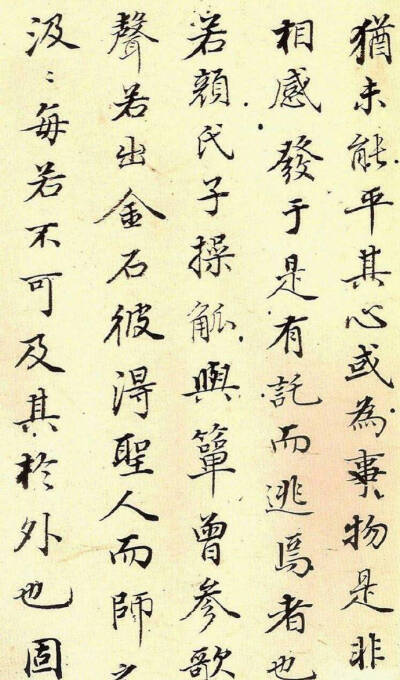 猶未能平其心或為事物是非
相感發于是有託而逃焉者也
若顏氏子操觚與簞曾參歌
聲若出金石彼得聖人而師之
汲〻每若不可及其於外也固